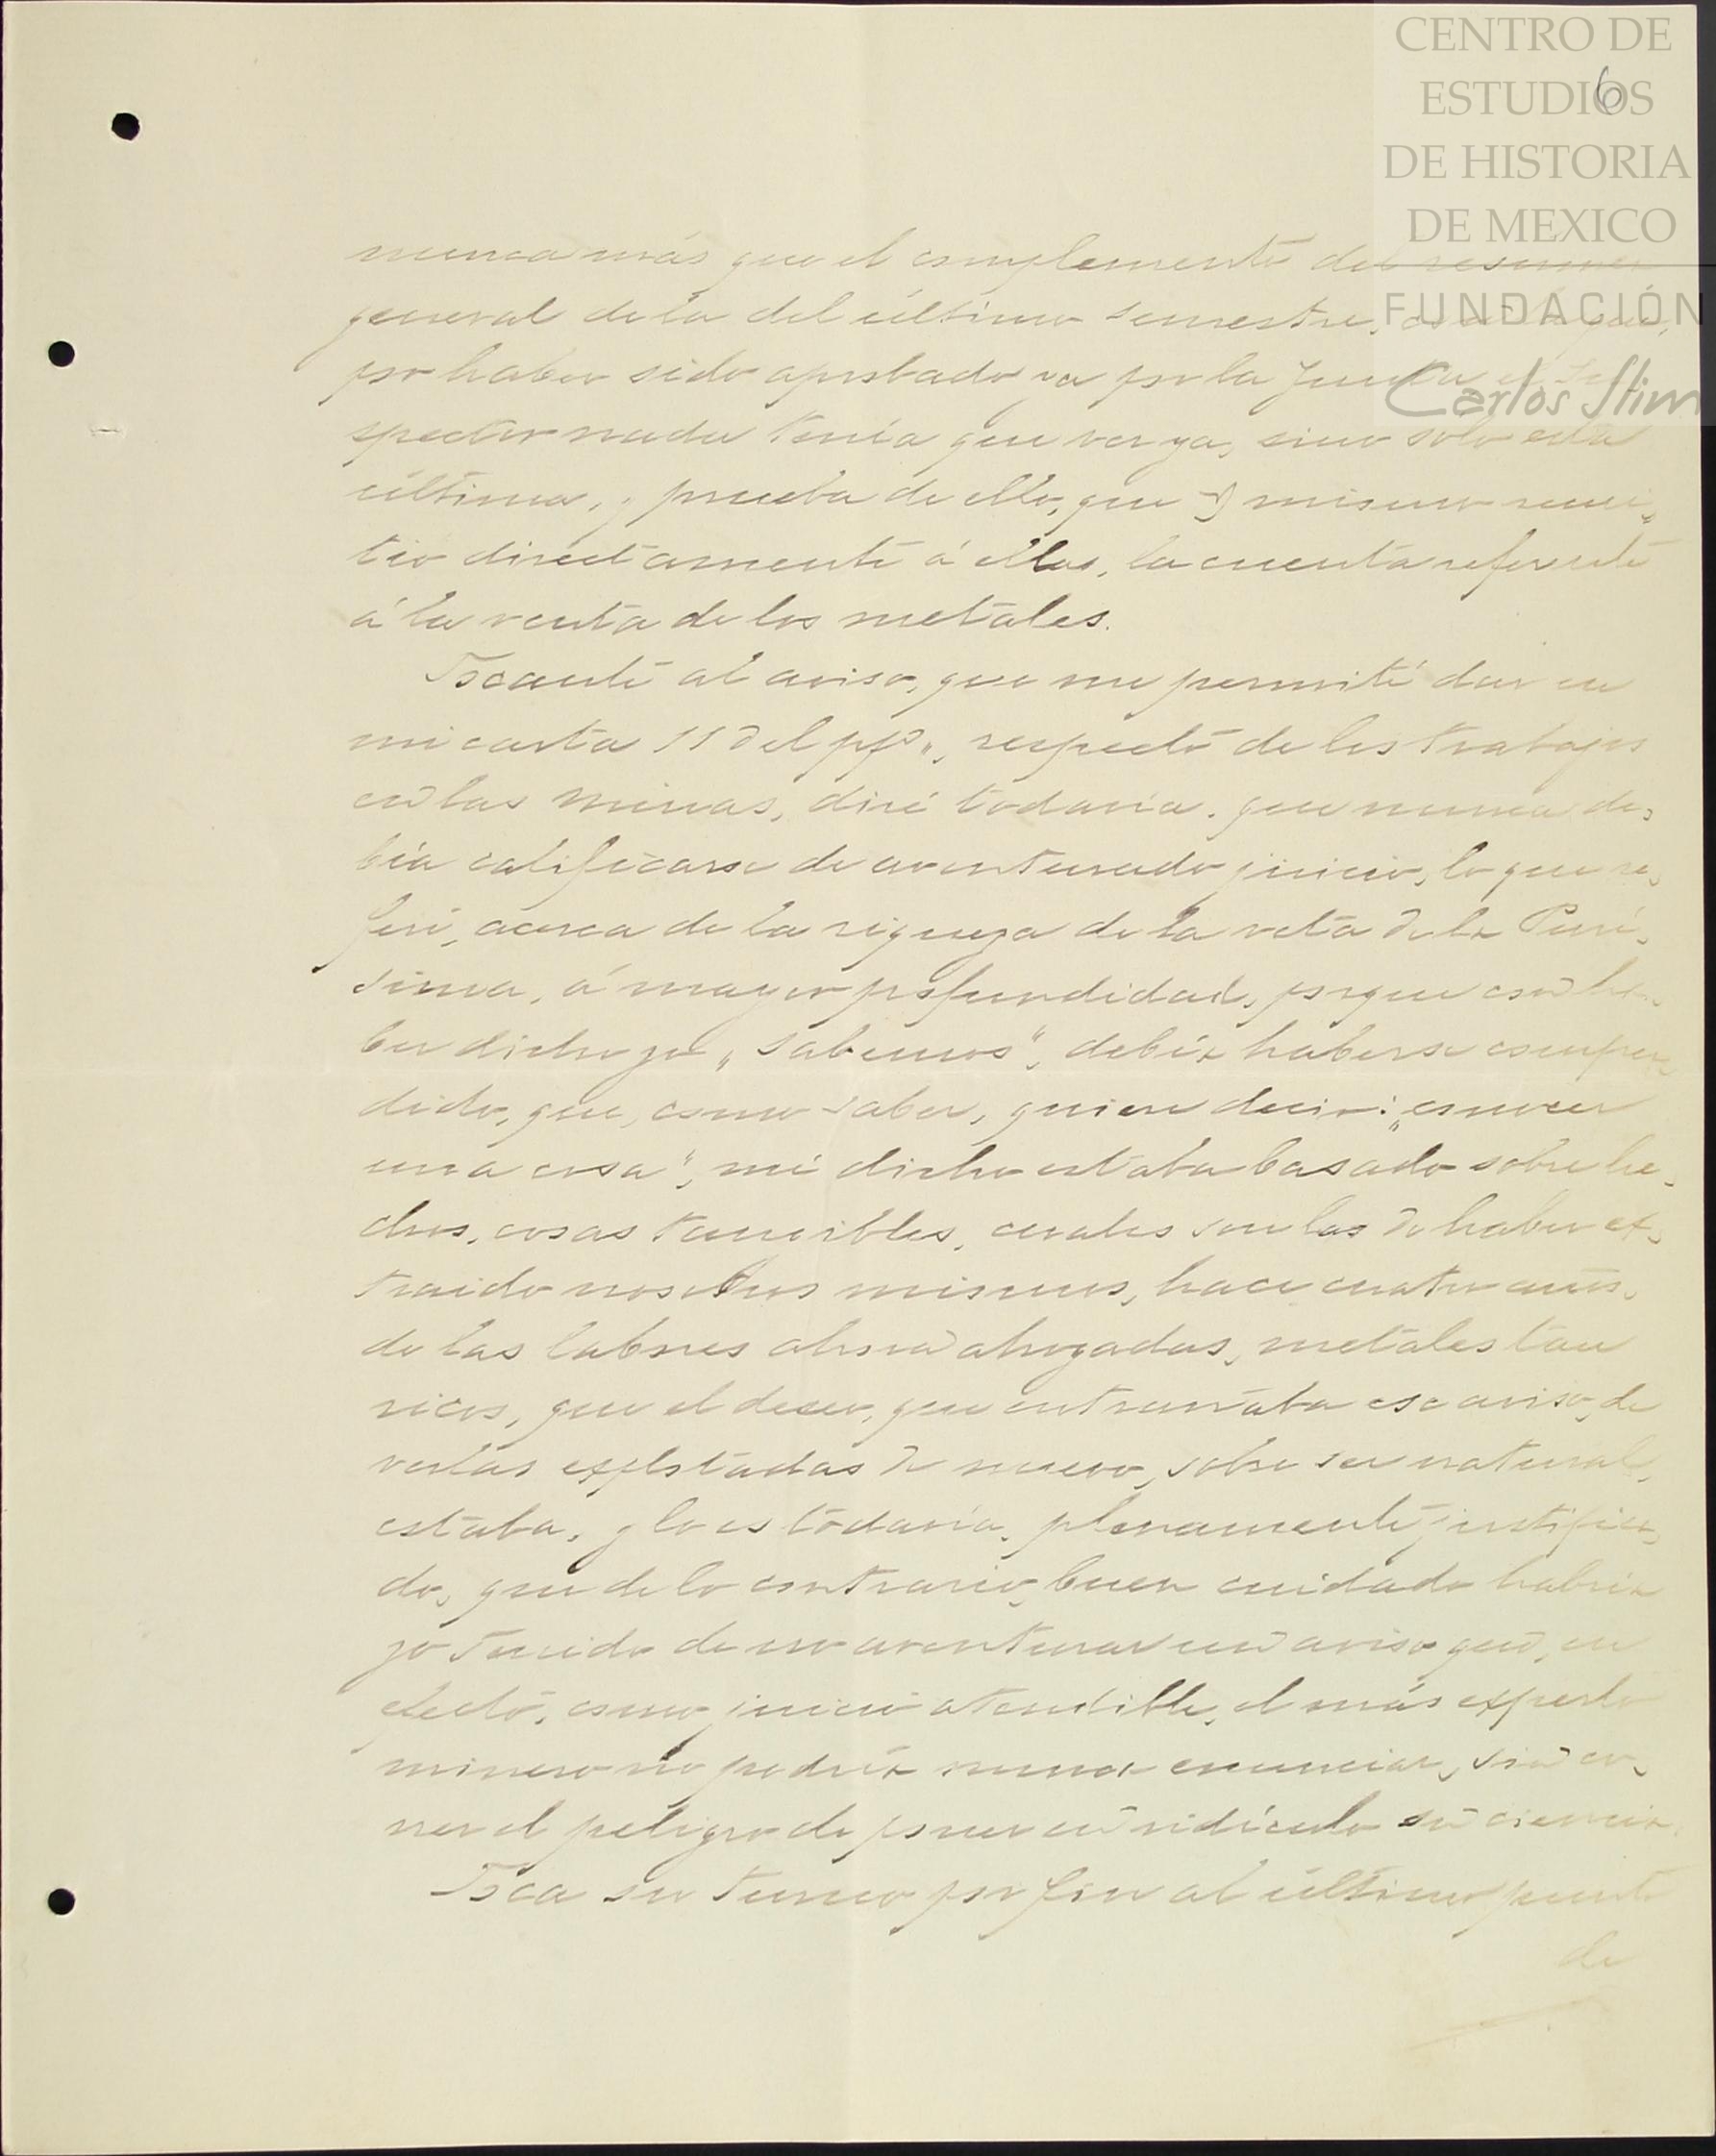 CENTRO DE
ESTUDIOS
DE HISTORIA
DE MEXICO
FUNDACIÓN
Carlos Slim
6
nunca más que el complemento del resumen
general de la del último semestre,
por haber sido aprobado ya por la Junta
spector nada tenía que ver ya, sino solo esta
última, y prueba de ello, que mismo remi„
tió directamente á ellas, la cuenta referente
á la venta de los metales.
Tocante al aviso, que me permití dar en
mi carta 11 del pp„, respecto de los trabajos
en las minas, diré todavía, que nunca de„
bía calificarse de aventurado juicio, lo que re„
ferí, acerca de la riqueza de la veta de la Purí„
sima, á mayor profundidad, porque con ha„
ber dicho yo „sabemos“, debía haberse compren„
dido, que, como saber, quiere decir: „conocer
una cosa“, mi dicho estaba basado sobre he„
chos, cosas tangibles, cuales son las de haber ex„
traido nosotros mismos, hace cuatro años,
de las labores ahora ahogadas, metales tan
ricos, que el deseo, que entrañaba ese aviso, de
verlas explotadas de nuevo, sobre ser natural,
estaba, y lo es todavía, plenamente justifica„
do, que de lo contrario, buen cuidado habría
yo tenido de no aventurar un aviso que, en
efecto, como juicio atendible, el más experto
minero no podría nunca enunciar, sin co„
rrer el peligro de poner en ridículo su ciencia.
Toca su turno por fin al último punto
de